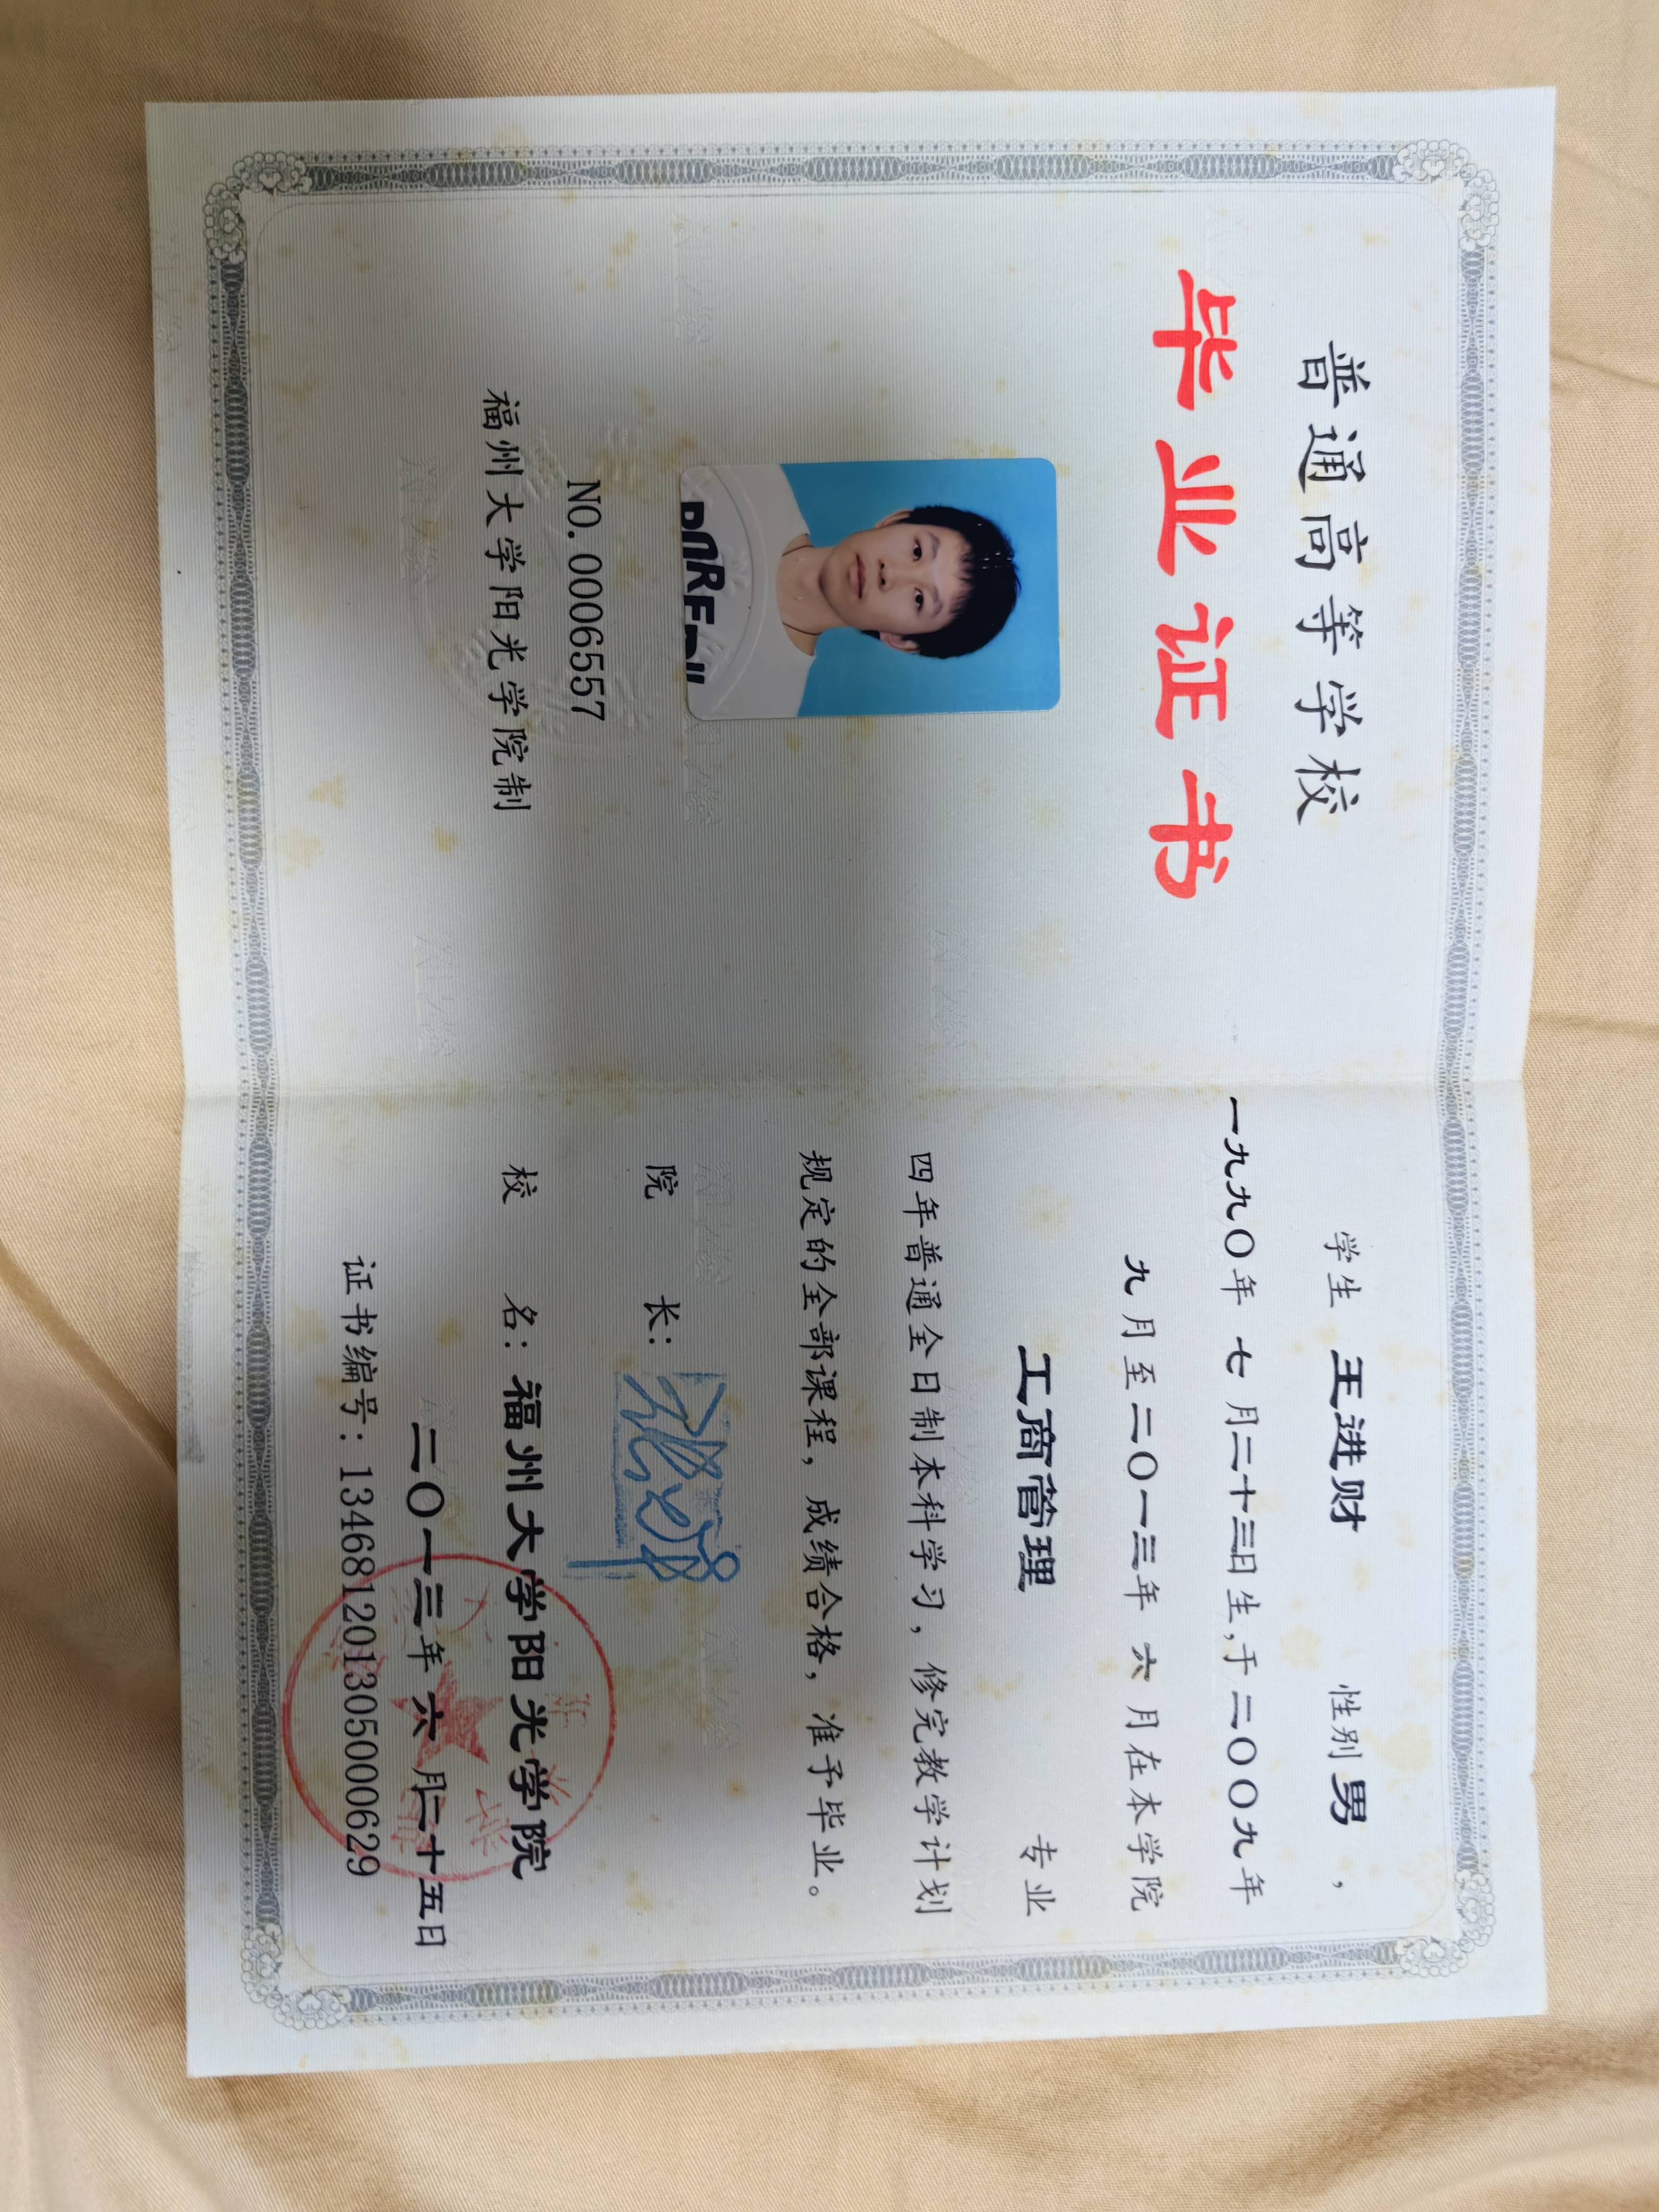 普通高等学校
毕业证书
NO.0006557
福州大学阳光学院制
学生 王进财 性别 男 ,
一九九〇年 七 月二十三日生,于二〇〇九年
九月至二〇一三年 六 月在本学院
工商管理 专业
四年普通全日制本科学习，修完教学计划
规定的全部课程，成绩合格，准予毕业。
院 长：
校 名：福州大学阳光学院
二〇一三年六月二十五日
证书编号：134681201305000629